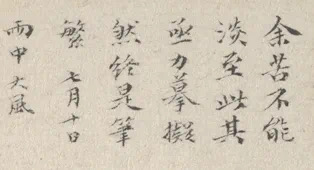 余苦不能
淡至此其
亟力摹擬
然終是筆
繁 七月十日
雨中 大風